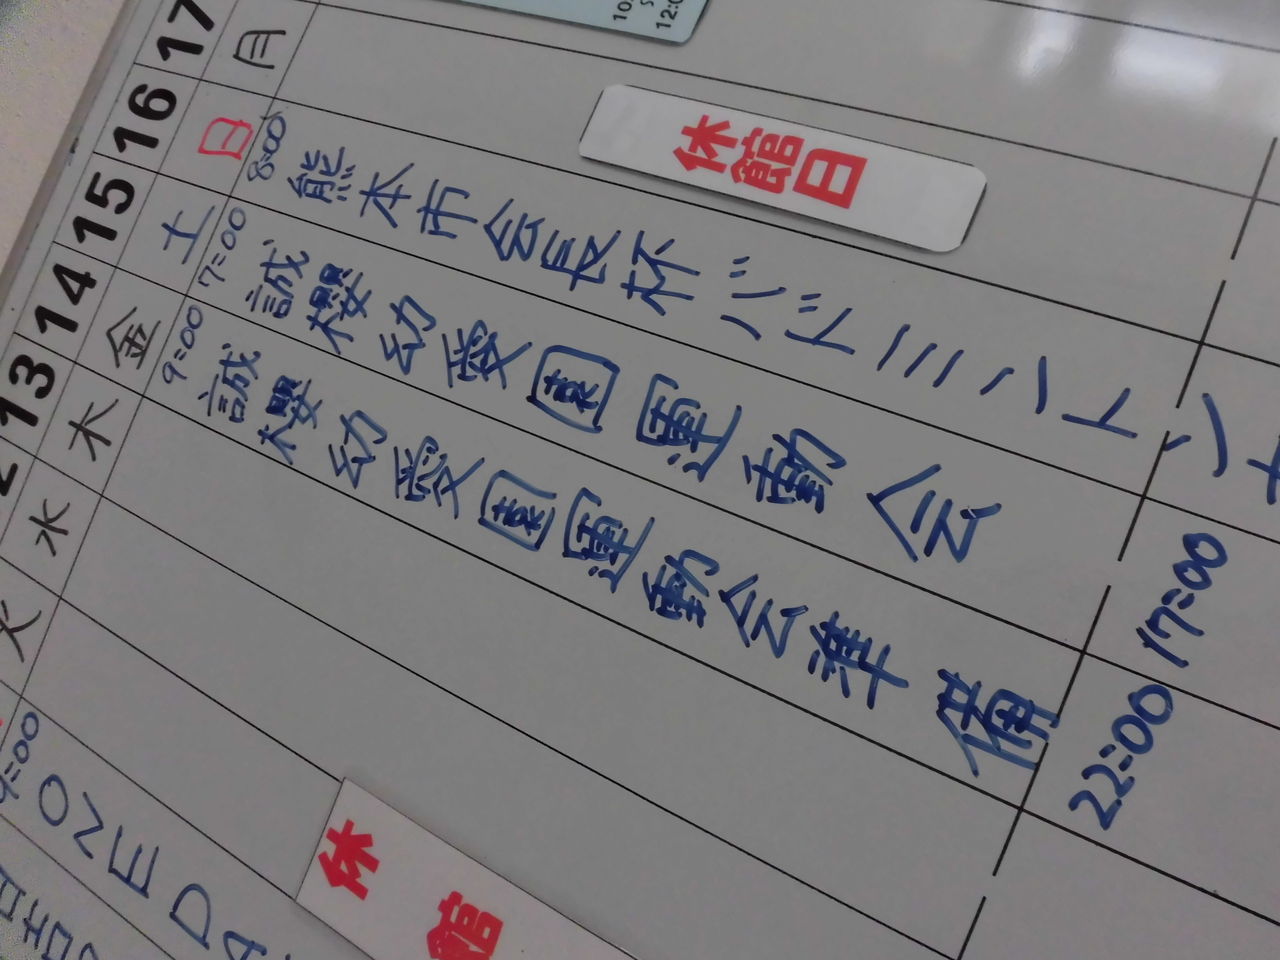 17 月 休館日
16 日 8:00 熊本市会長杯バドミントン
15 土 7:00 誠櫻幼愛園運動会 17:00
14 金 9:00 誠櫻幼愛園運動会準備 22:00
13 木
水
火 休館
9:00 ONE DA